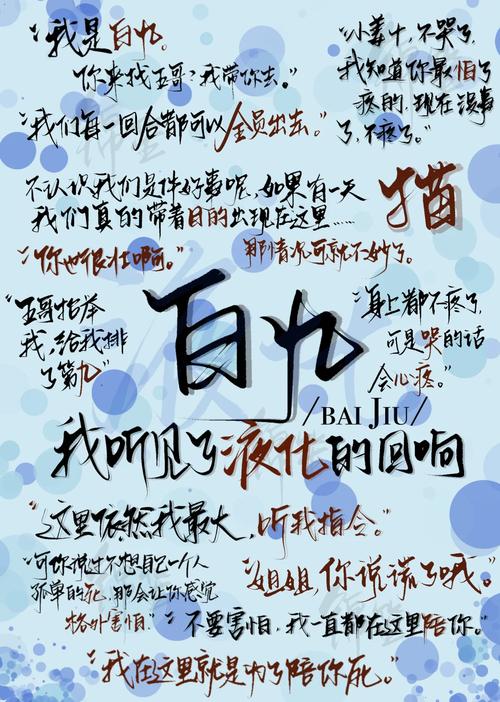 “我是白九。
你来找五哥？我带你去。”
“小姜十，不哭了，
我知道你最怕了
疼的，现在没事
了，不疼了。”
“我们每一回合都可以全员出去。”
不认识我们是件好事呢，如果有一天
我们真的带着目的出现在这里……
那情况可就不妙了。
猫
“你也很壮啊。”
“五哥抬举
我，给我排
了第九”
白九
/BAI JIU/
“身上都不疼了，
可是哭的话
会心疼。”
我听见了液化的回响
“这里依然我最大，听我指令。”
“可你说过不想自己一个人
孤单的死，那会让你感觉
格外害怕。”
“姐姐，你说谎了哦。”
“不要害怕，我一直都在这里陪你。”
“我在这里就是为了陪你死。”